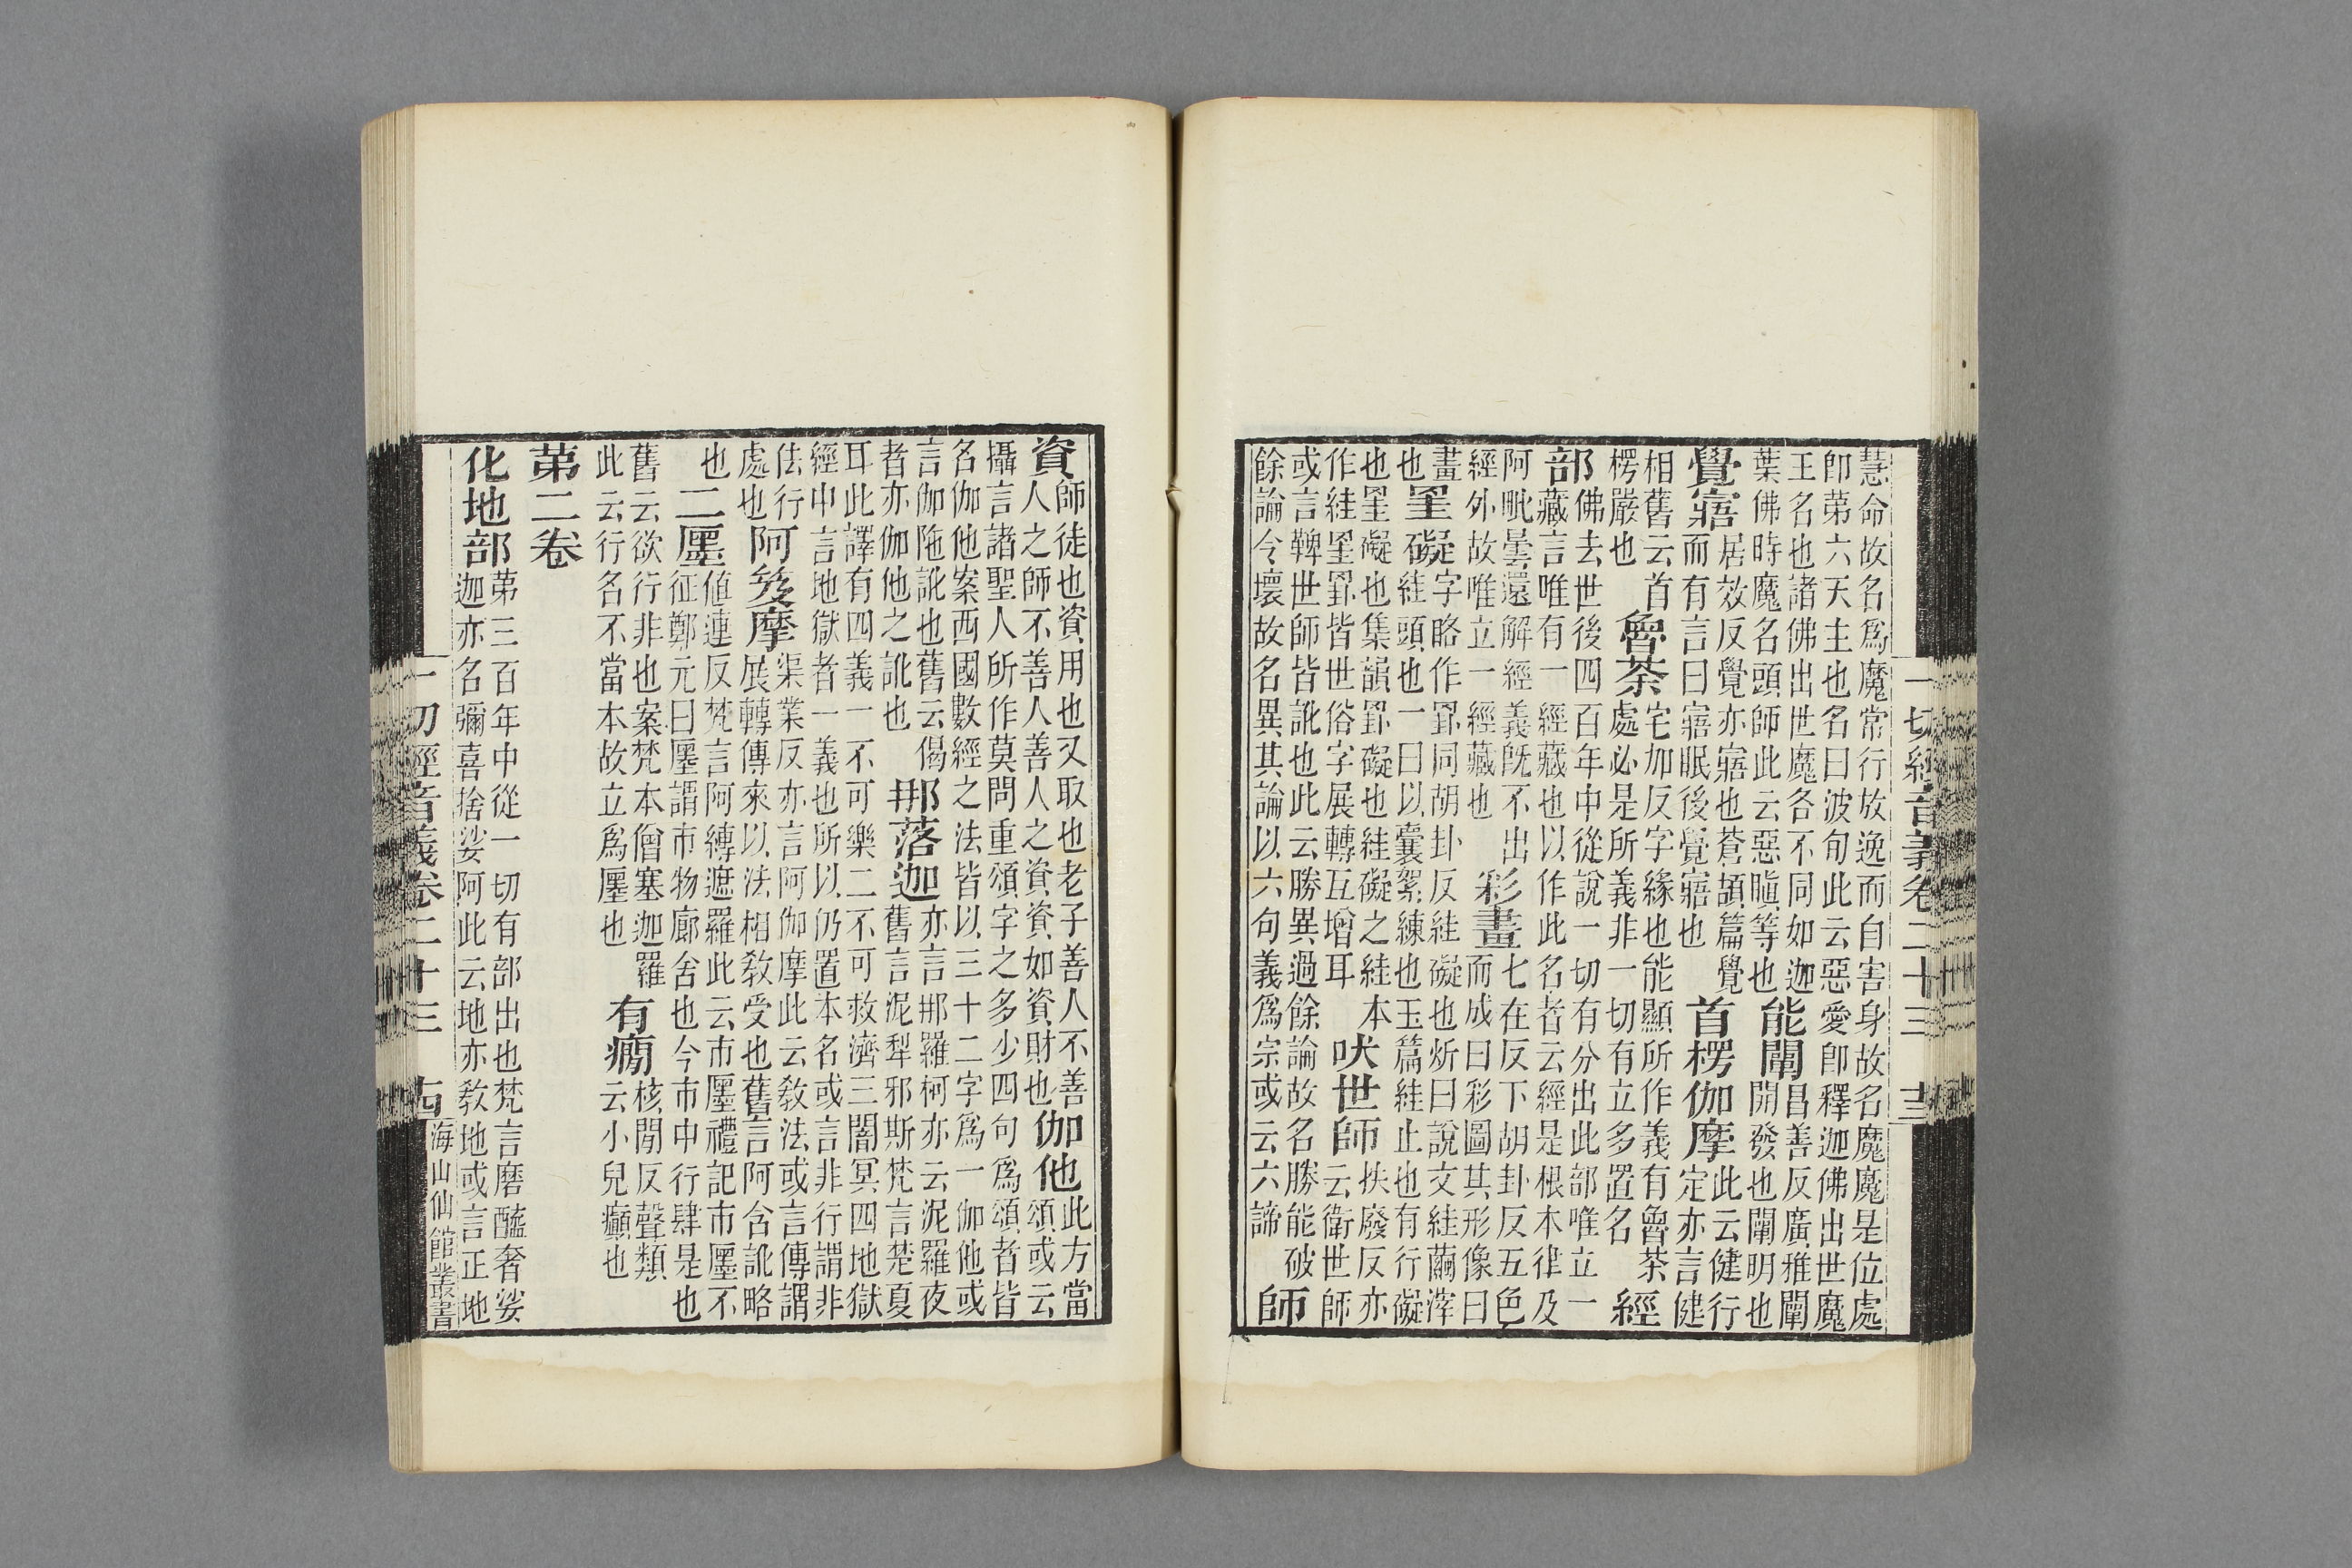 慧命故名爲魔常行放逸而自害身故名魔魔是位處
卽第六天主也名曰波旬此云惡愛卽釋迦佛出世魔
王名也諸佛出世魔各不同如迦
葉佛時魔名頭師此云惡瞋等也
能闡
昌善反廣雅闡
開發也闡明也
覺寤
居效反覺亦寤也蒼頡篇覺
而有言曰寤眠後覺寤也
首楞伽摩
此云健行
定亦言健
相舊云首
楞嚴也
魯荼
宅加反字緣也能顯所作義有魯荼
處必是所義非一切有立多置名
經
部
佛去世後四百年中從說一切有分出此部唯立一
藏言唯有一經藏也以作此名者云經是根本律及
阿毗曇還解經義旣不出
經外故唯立一經藏也
彩畫
七在反下胡卦反五色
而成曰彩圖其形像曰
畫
也
罣礙
字略作罫同胡卦反絓礙也炘曰說文絓繭滓
絓頭也一曰以囊絮練也玉篇絓止也有行礙
也罣礙也集韻罫礙也絓礙之絓本
作絓罣罫皆世俗字展轉互增耳
吠世師
扶廢反亦
云衛世師
或言鞞世師皆訛也此云勝異過餘論故名勝能破
餘論令壞故名異其論以六句義爲宗或云六諦
師
一切經音義卷二十三 十三
資
師徒也資用也又取也老子善人不善
人之師不善人善人之資資如資財也
伽他
此方當
頌或云
攝言諸聖人所作莫問重頌字之多少四句爲頌者皆
名伽他案西國數經之法皆以三十二字爲一伽他或
言伽陁訛也舊云偈
者亦伽他之訛也
那落迦
亦言那羅柯亦云泥羅夜
舊言泥犁邪斯梵言楚夏
耳此譯有四義一不可樂二不可救濟三闇冥四地獄
經中言地獄者一義也所以仍置本名或言非行謂非
法行
處也
阿笈摩
渠業反亦言阿伽摩此云敎法或言傳謂
展轉傳來以法相敎受也舊言阿含訛略
也
二㕓
值連反梵言阿縛遮羅此云市㕓禮記市㕓不
征鄭元曰㕓謂市物廊舍也今市中行肆是也
舊云欲行非也案梵本僧塞迦羅
此云行名不當本故立爲㕓也
有癇
核閒反聲類
云小兒癲也
第二卷
化地部
第三百年中從一切有部出也梵言磨醯奢娑
迦亦名彌喜捨娑阿此云地亦敎地或言正地
一切經音義卷二十三 十四 海山仙館叢書